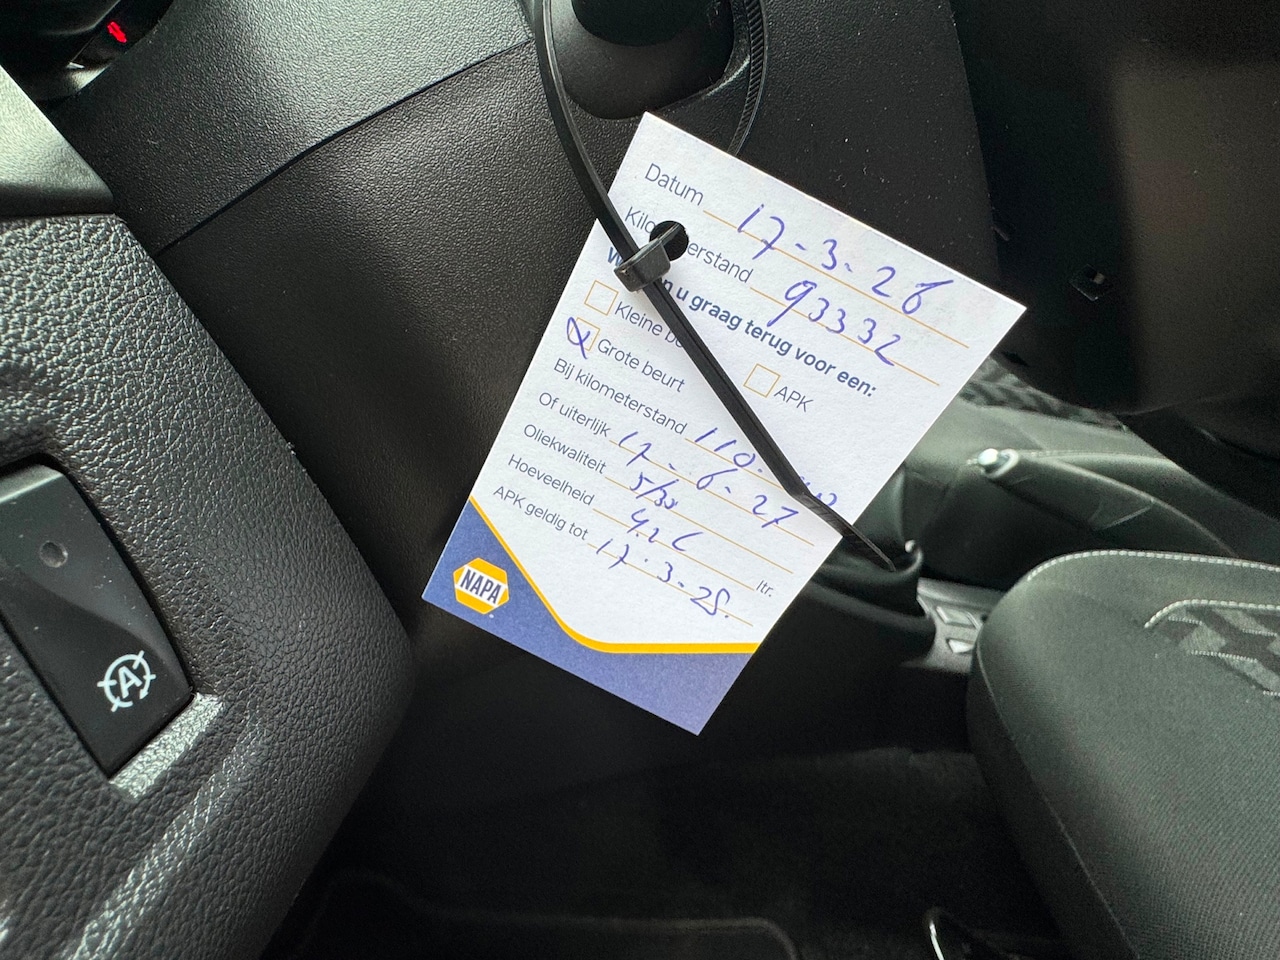 Datum 17-3-26
Kilo erstand 93332
n u graag terug voor een:
Kleine be
Grote beurt
APK
Bij kilometerstand 110.
Of uiterlijk 17-6-27
Oliekwaliteit 5/30
Hoeveelheid 4,2 L ltr.
APK geldig tot 17.3.28.
NAPA
A